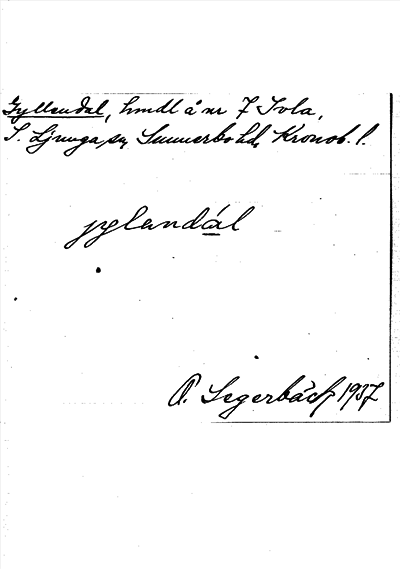 Gyllendal, hmdl å nr 7 Tvla,
S. Ljunga sn, Sunnerbo hd, Kronob. l.
jylandál
O. Segerbäck 1937